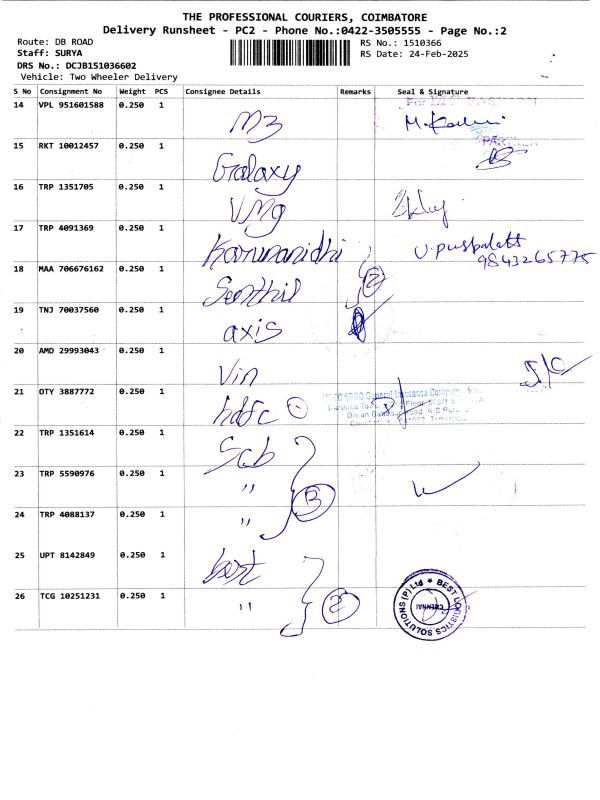 THE PROFESSIONAL COURIERS, COIMBATORE
Delivery Runsheet - PC2 - Phone No.:0422-3505555 - Page No.:2
Route: DB ROAD
RS No.: 1510366
Staff: SURYA
RS Date: 24-Feb-2025
DRS No.: DCJB151036602
Vehicle: Two Wheeler Delivery
S No Consignment No Weight PCS Consignee Details Remarks Seal & Signature
14 VPL 951601588 0.250 1 M3
15 RKT 10012457 0.250 1 Galaxy
16 TRP 1351705 0.250 1 VMg
17 TRP 4091369 0.250 1 Karunanidhi U.puspalatt
9843265775
18 MAA 706676162 0.250 1 Senthil 2
19 TNJ 70037560 0.250 1 axis
20 AMD 29993043 0.250 1 Vin
21 OTY 3887772 0.250 1 hdfc General Insurance
22 TRP 1351614 0.250 1 Scb
23 TRP 5590976 0.250 1 " 3
24 TRP 4088137 0.250 1 "
25 UPT 8142849 0.250 1 best
26 TCG 10251231 0.250 1 " 2
BEST LOGISTICS SOLUTIONS (P) Ltd
CHENNAI